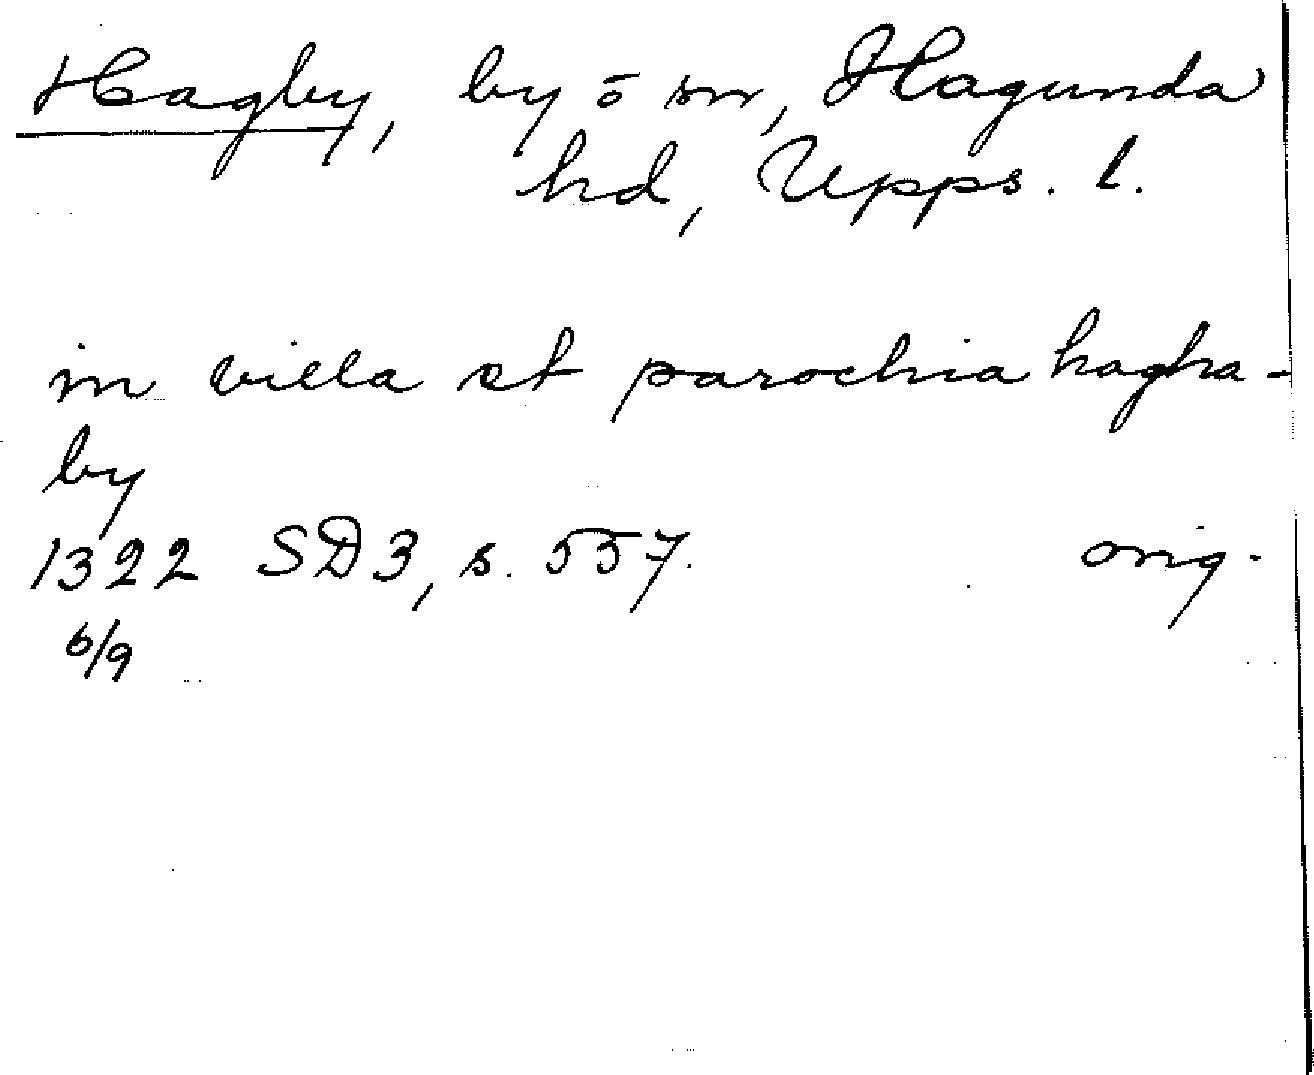 Hagby, by o sn, Hagunda
hd, Upps. l.
in villa et parochia hagha-
by
1322 SD3, s. 557. orig.
6/9